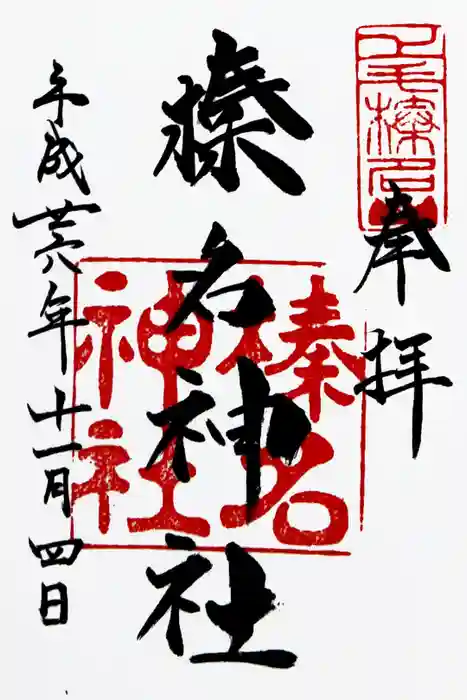 上毛榛名山
奉拝
榛名神社
榛名
神社
平成廿六年十一月四日